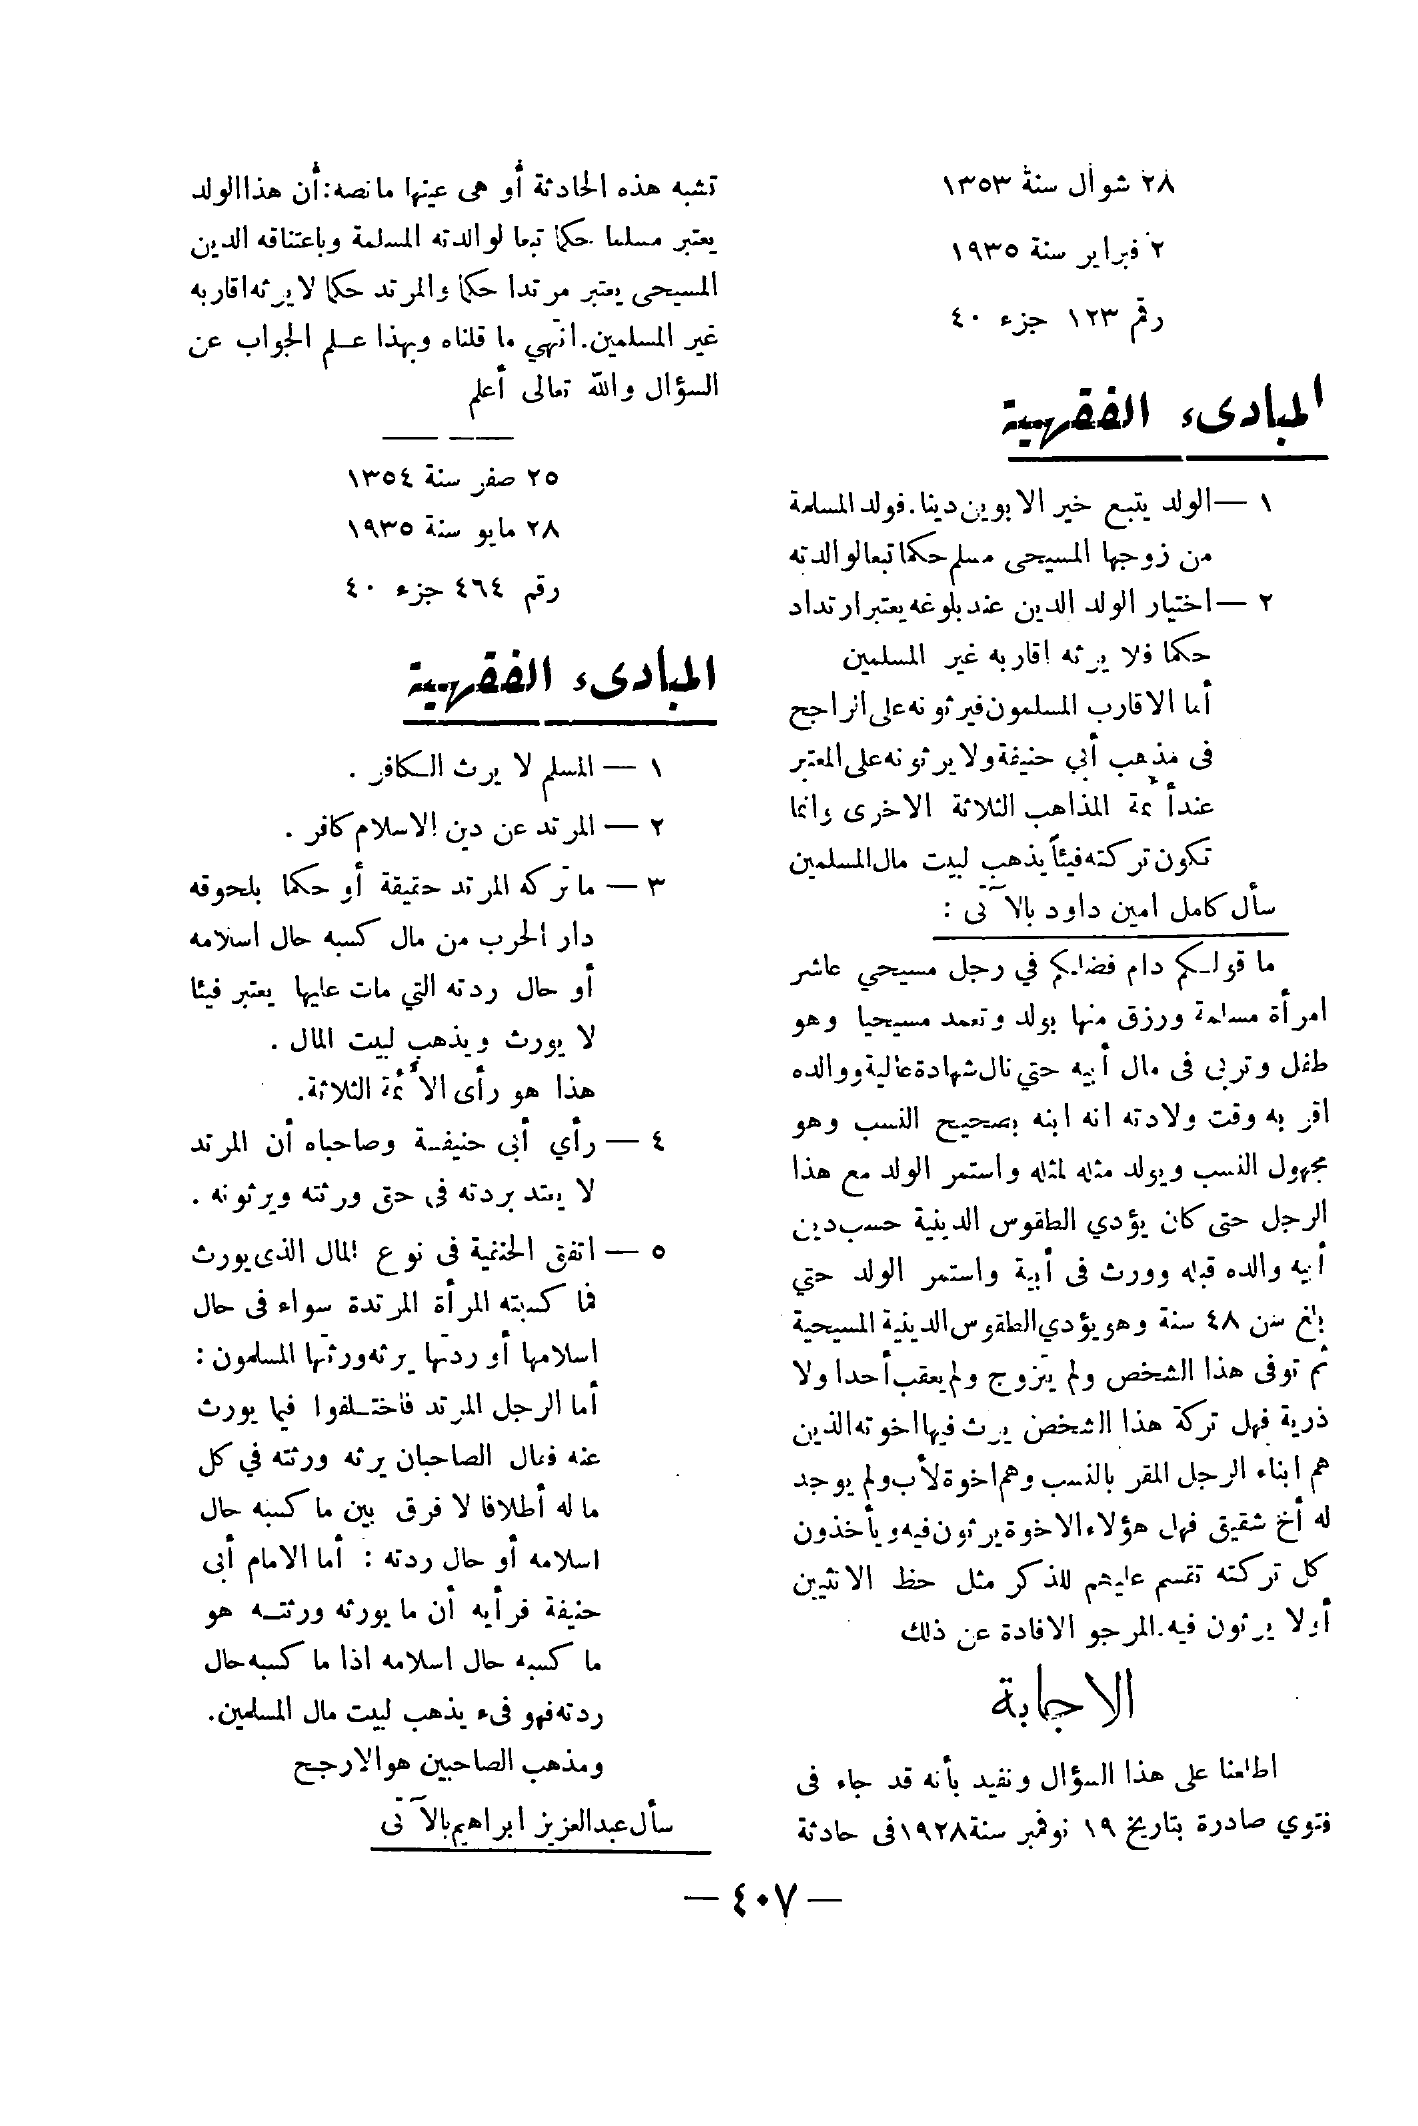 ٢٨ شوال سنة ١٣٥٣
٢ فبراير سنة ١٩٣٥
رقم ١٢٣ جزء ٤٠
المبادىء الفقهية
١ — الولد يتبع خير الابوين دينا. فولد المسلمة
من زوجها المسيحى مسلم حكما تبعا لوالدته
٢ — اختيار الولد الدين عند بلوغه يعتبر ارتداد
حكما فلا يرثه اقاربه غير المسلمين
أما الاقارب المسلمون فيرثونه على الراجح
فى مذهب أبي حنيفة ولا يرثونه على المعتبر
عند أئمة المذاهب الثلاثة الاخرى وانما
تكون تركته فيئاً يذهب لبيت مال المسلمين
سأل كامل امين داود بالآتى :
ما قولكم دام فضلكم في رجل مسيحي عاشر
امرأة مسلمة ورزق منها بولد وتعمد مسيحيا وهو
طفل وتربى فى مال أبيه حتي نال شهادة عالية ووالده
اقر به وقت ولادته انه ابنه بصحيح النسب وهو
مجهول النسب ويولد مثله لمثله واستمر الولد مع هذا
الرجل حتى كان يؤدي الطقوس الدينية حسب دين
أبيه والده قبله وورث فى أبية واستمر الولد حتي
بلغ سن ٤٨ سنة وهو يؤدي الطقوس الدينية المسيحية
ثم توفى هذا الشخص ولم يتزوج ولم يعقب أحدا ولا
ذرية فهل تركة هذا الشخص يرث فيها اخوته الذين
هم ابناء الرجل المقر بالنسب وهم اخوة لأب ولم يوجد
له أخ شقيق فهل هؤلاء الاخوة يرثون فيه ويأخذون
كل تركته تقسم عليهم للذكر مثل حظ الانثيين
أولا يرثون فيه. المرجو الافادة عن ذلك
الاجابة
اطلعنا على هذا السؤال ونفيد بأنه قد جاء فى
فتوي صادرة بتاريخ ١٩ نوفمبر سنة ١٩٢٨ فى حادثة
تشبه هذه الحادثة أو هى عينها ما نصه: أن هذا الولد
يعتبر مسلما حكما تبعا لوالدته المسلمة وباعتناقه الدين
المسيحى يعتبر مرتدا حكما والمرتد حكما لا يرثه اقاربه
غير المسلمين. انتهي ما قلناه وبهذا علم الجواب عن
السؤال والله تعالى أعلم
٢٥ صفر سنة ١٣٥٤
٢٨ مايو سنة ١٩٣٥
رقم ٤٦٤ جزء ٤٠
المبادىء الفقهية
١ — المسلم لا يرث الكافر .
٢ — المرتد عن دين الاسلام كافر .
٣ — ما تركه المرتد حقيقة أو حكما بلحوقه
دار الحرب من مال كسبه حال اسلامه
أو حال ردته التي مات عليها يعتبر فيئا
لا يورث ويذهب لبيت المال .
هذا هو رأى الأئمة الثلاثة.
٤ — رأي أبى حنيفة وصاحباه أن المرتد
لا يعتد بردته فى حق ورثته ويرثونه .
٥ — اتفق الحنفية فى نوع المال الذى يورث
فما كسبته المرأة المرتدة سواء فى حال
اسلامها أو ردتها يرثه ورثتها المسلمون :
أما الرجل المرتد فاختلفوا فيما يورث
عنه فقال الصاحبان يرثه ورثته في كل
ماله أطلاقا لا فرق بين ما كسبه حال
اسلامه أو حال ردته : أما الامام أبى
حنيفة فرأيه أن ما يورثه ورثته هو
ما كسبه حال اسلامه اذا ما كسبه حال
ردته فهو فىء يذهب لبيت مال المسلمين.
ومذهب الصاحبين هو الارجح
سأل عبدالعزيز ابراهيم بالآتى
— ٤٠٧ —